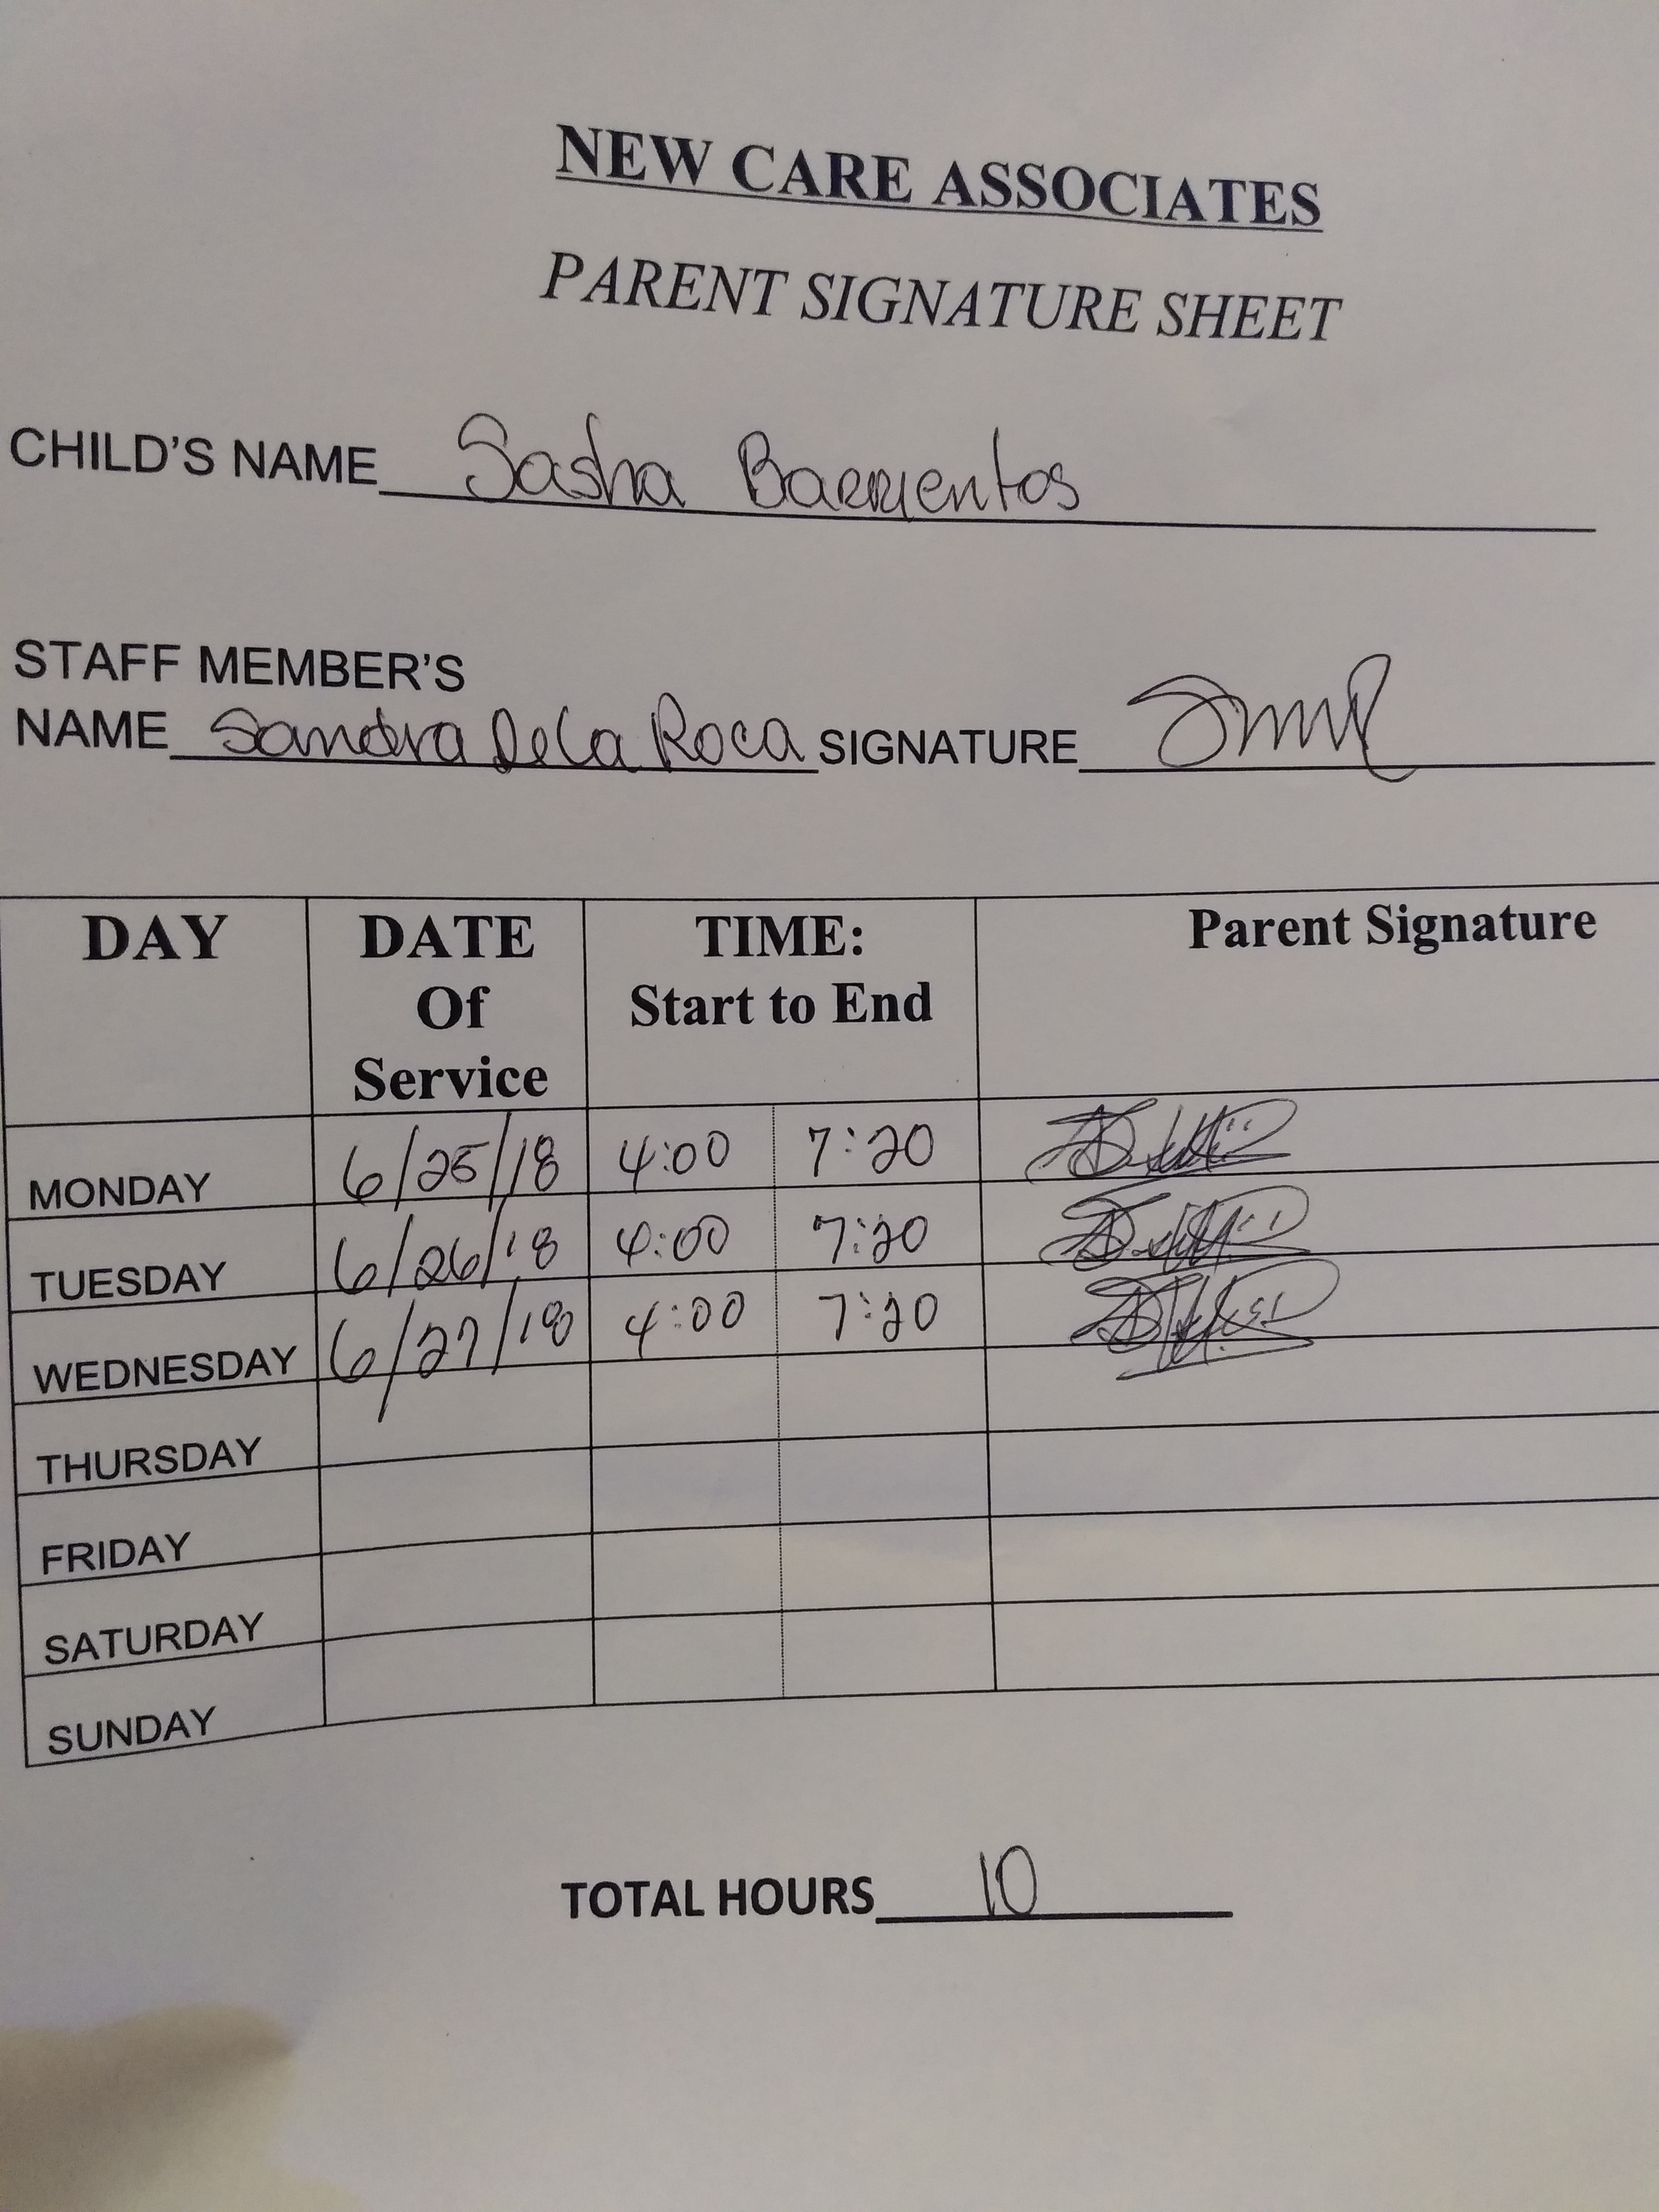 NEW CARE ASSOCIATES
PARENT SIGNATURE SHEET
CHILD'S NAME Sasha Barrientos
STAFF MEMBER'S
NAME Sandra DeLa Roca SIGNATURE
DAY DATE Of Service TIME: Start to End Parent Signature
MONDAY 6/25/18 4:00 7:20
TUESDAY 6/26/18 4:00 7:20
WEDNESDAY 6/27/18 4:00 7:20
THURSDAY
FRIDAY
SATURDAY
SUNDAY
TOTAL HOURS 10